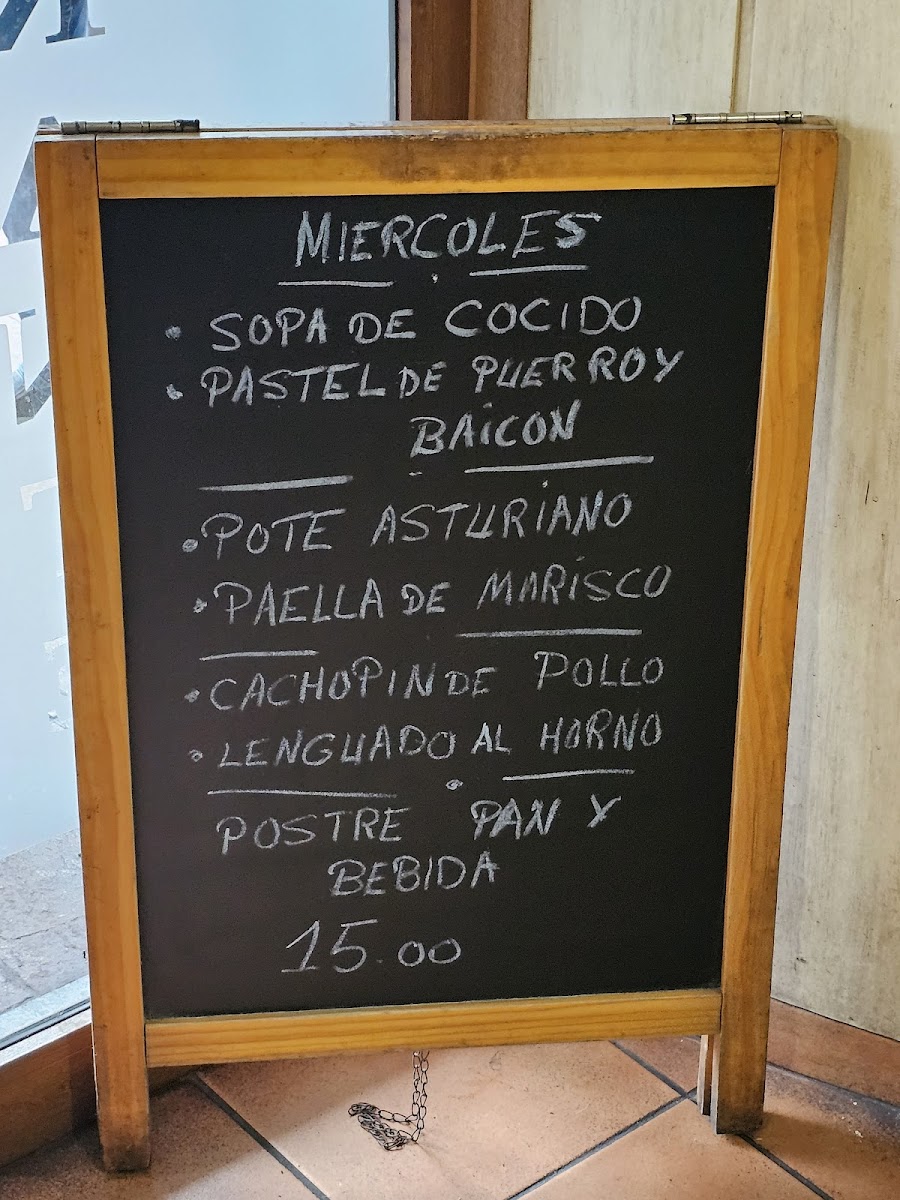 MIERCOLES
• SOPA DE COCIDO
• PASTEL DE PUERRO Y
BAICON
• POTE ASTURIANO
• PAELLA DE MARISCO
• CACHOPIN DE POLLO
• LENGUADO AL HORNO
POSTRE PAN Y
BEBIDA
15.00